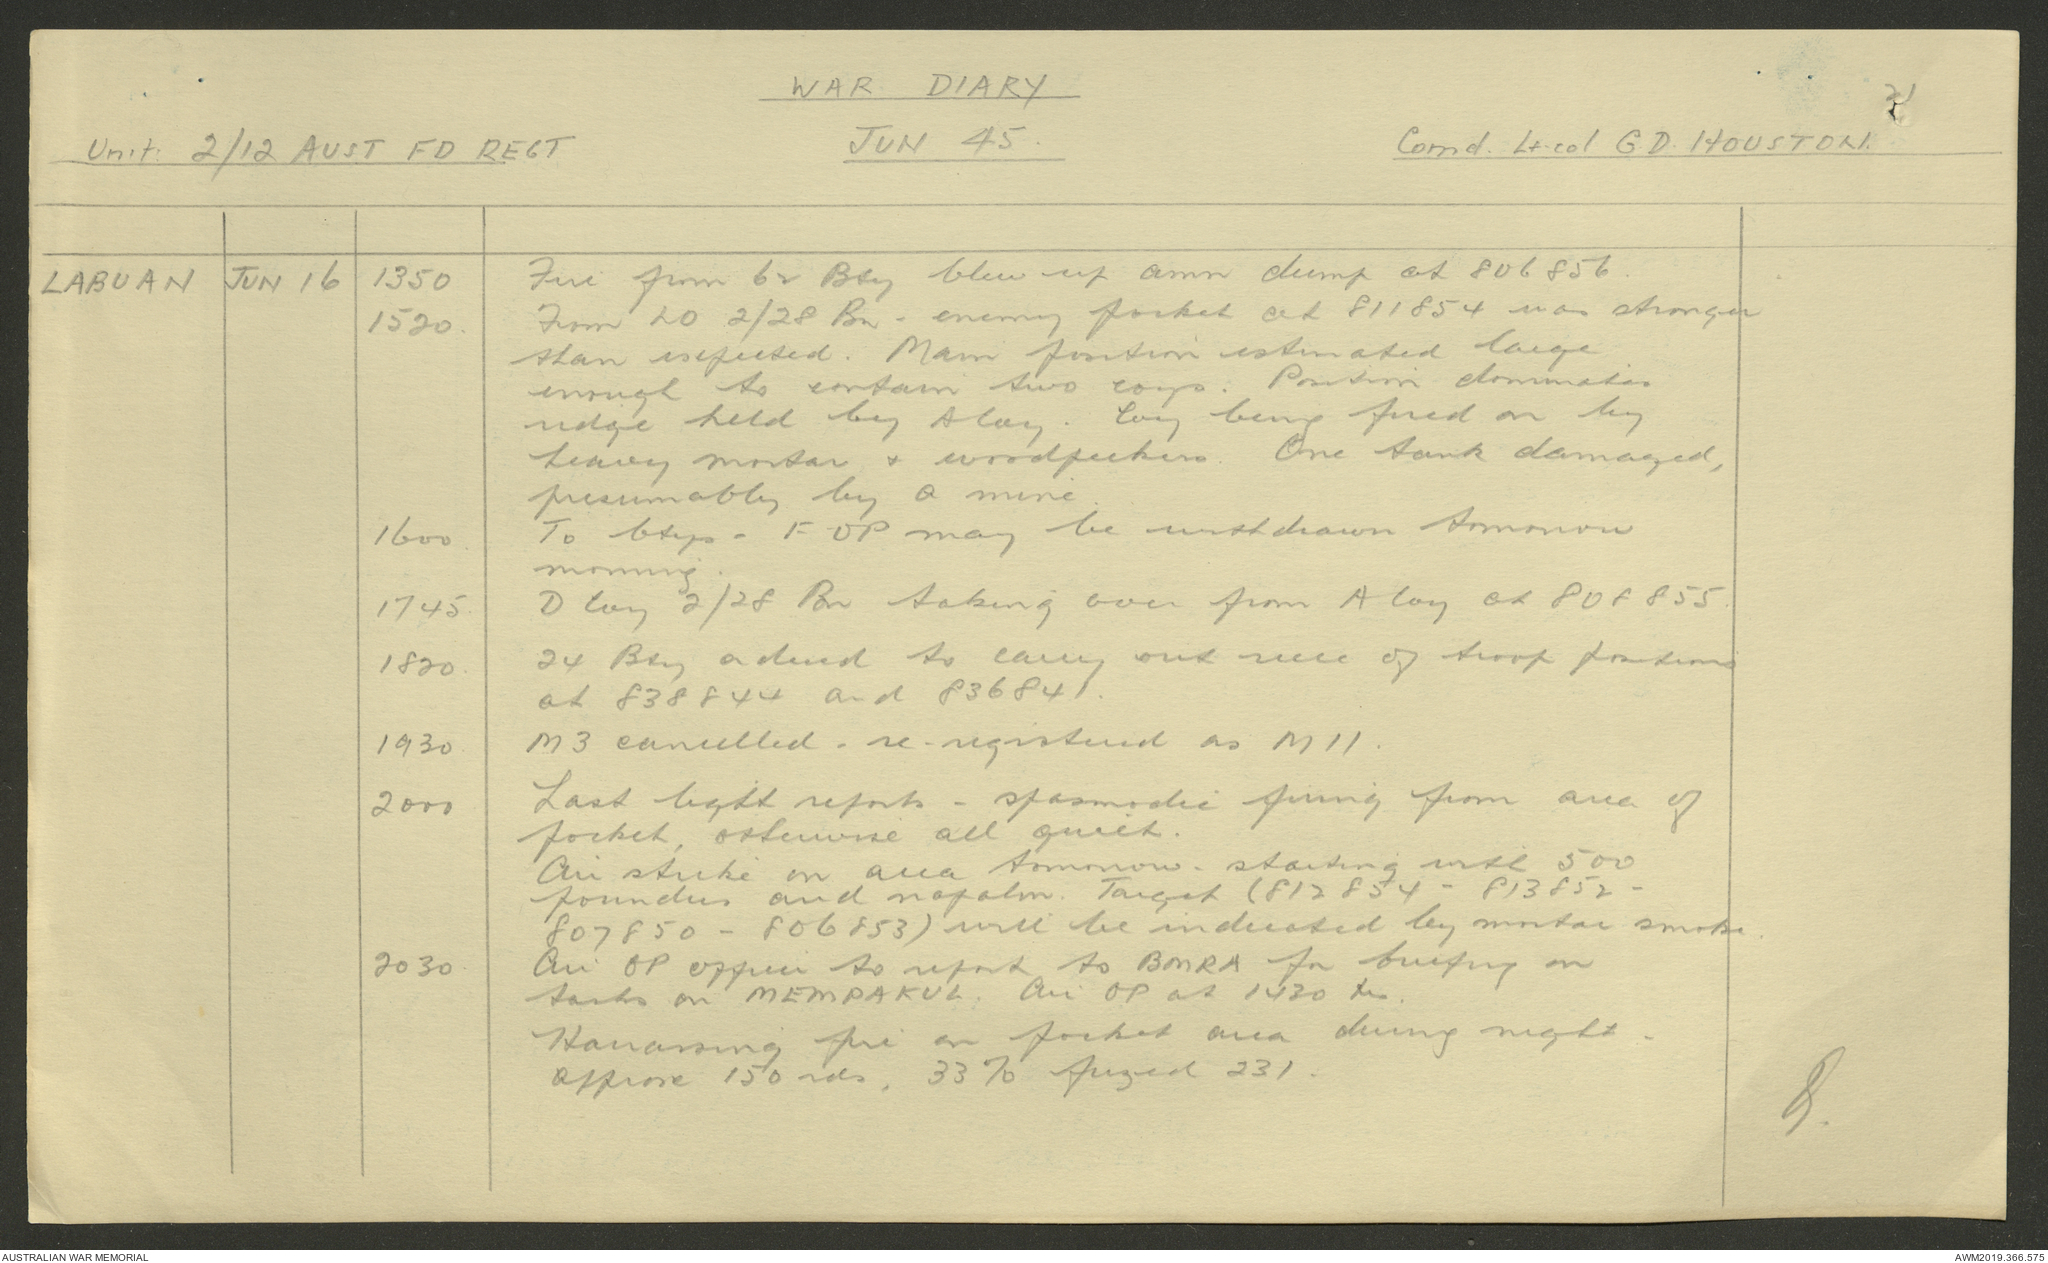 WAR DIARY
21
Unit: 2/12 AUST FD REGT
JUN 45.
Comd. Lt-col G.D. HOUSTON.
LABUAN JUN 16 1350 Fire from 62 Bty blew up amn dump at 806856.
1520. From LO 2/28 Bn - enemy pocket at 811854 was stronger
than expected. Main position estimated large
enough to contain two coys. Position dominates
ridge held by A Coy. Coy being fired on by
heavy mortar & woodpeckers. One tank damaged,
presumably by a mine.
1600. To btys - F OP may be withdrawn tomorrow
morning.
1745. D Coy 2/28 Bn taking over from A Coy at 808855.
1820. 24 Bty ordered to carry out recce of troop positions
at 838844 and 836841.
1930. M3 cancelled - re-registered as M11.
2000 Last light reports - spasmodic firing from area of
pocket, otherwise all quiet.
Air strike on area tomorrow - starting with 500
pounders and napalm. Target (812854 - 813852 -
807850 - 806853) will be indicated by mortar smoke.
2030. Air OP officer to report to BMRA for briefing on
tasks on MEMPAKUL. Air OP at 1430 hrs.
Harassing fire on pocket area during night -
approx 150 rds, 33% fuzed 231.
AUSTRALIAN WAR MEMORIAL
AWM2019.366.575